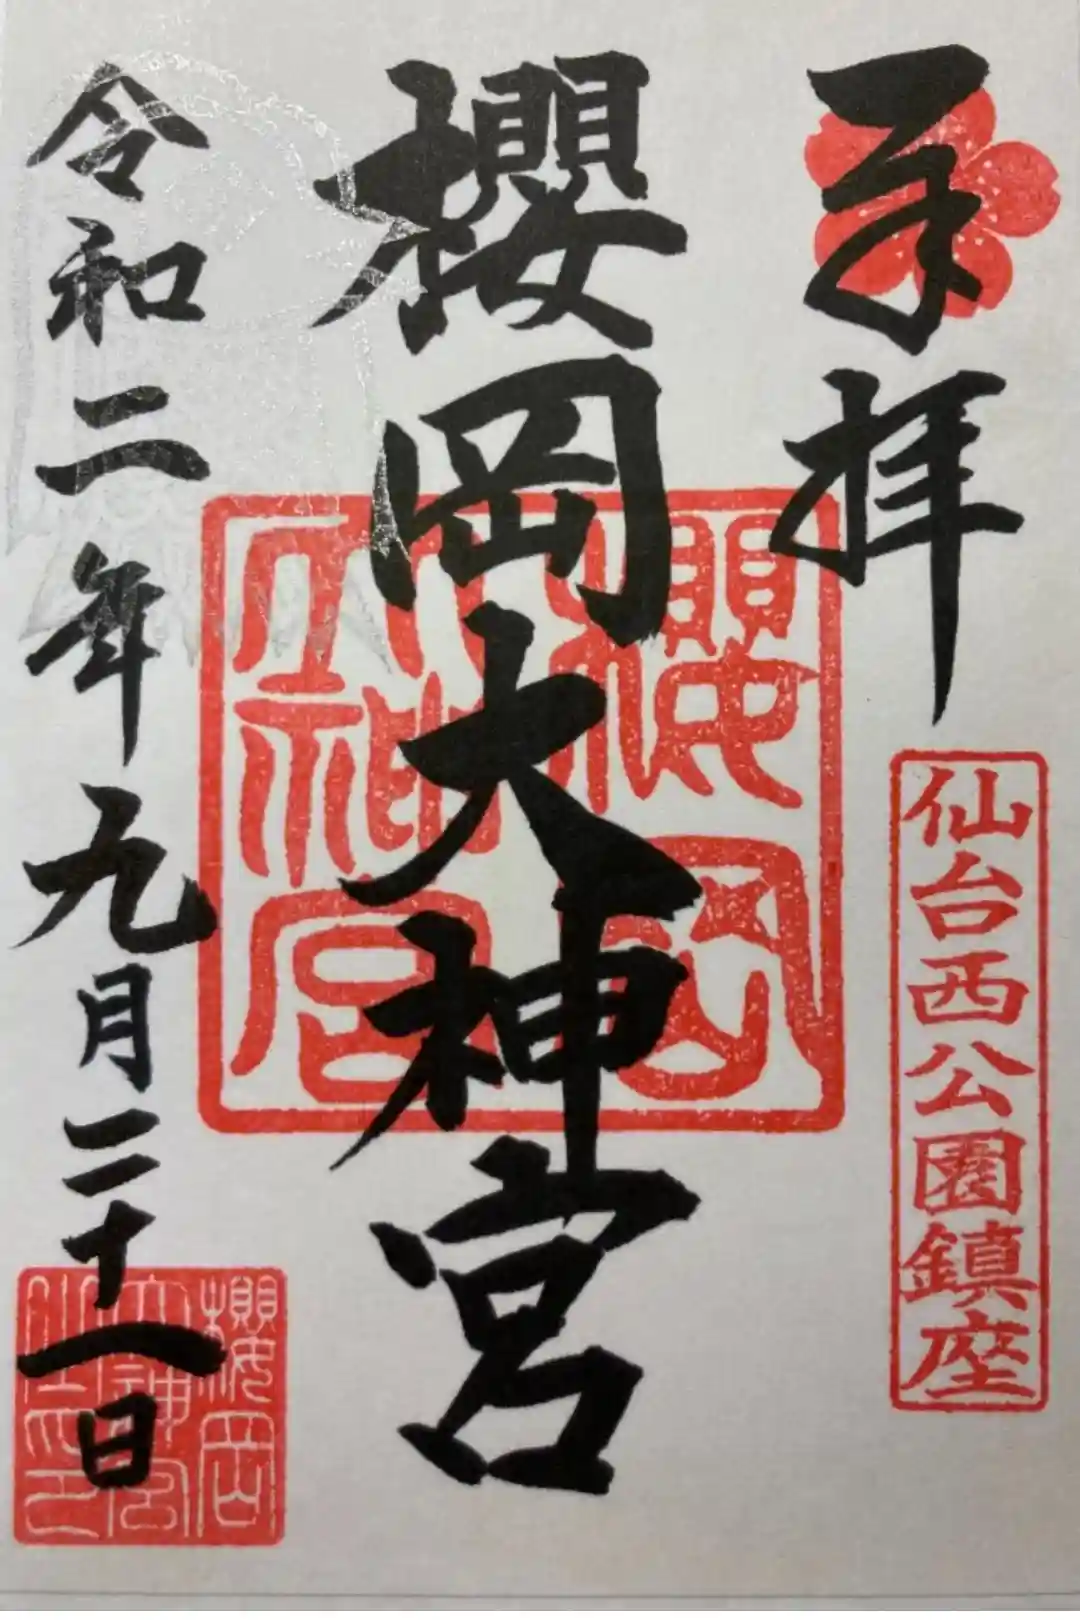 奉拝
仙台西公園鎮座
櫻岡大神宮
櫻岡
大神宮
令和二年九月二十一日
櫻岡
大神宮
之印